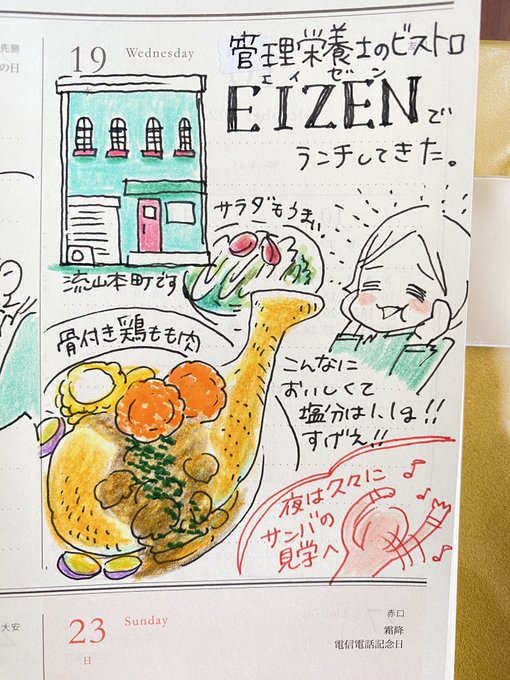 先勝
の日
19 Wednesday
水
友
管理栄養士のビストロ
エイゼン
EIZENで
ランチしてきた。
サラダもうまい。
流山本町です
骨付き鶏もも肉
こんなに
おいしくて
塩分は1.1g!!
すげえ!!
夜は久々に
サンバの
見学へ
大安
23 Sunday
日
赤口
霜降
電信電話記念日